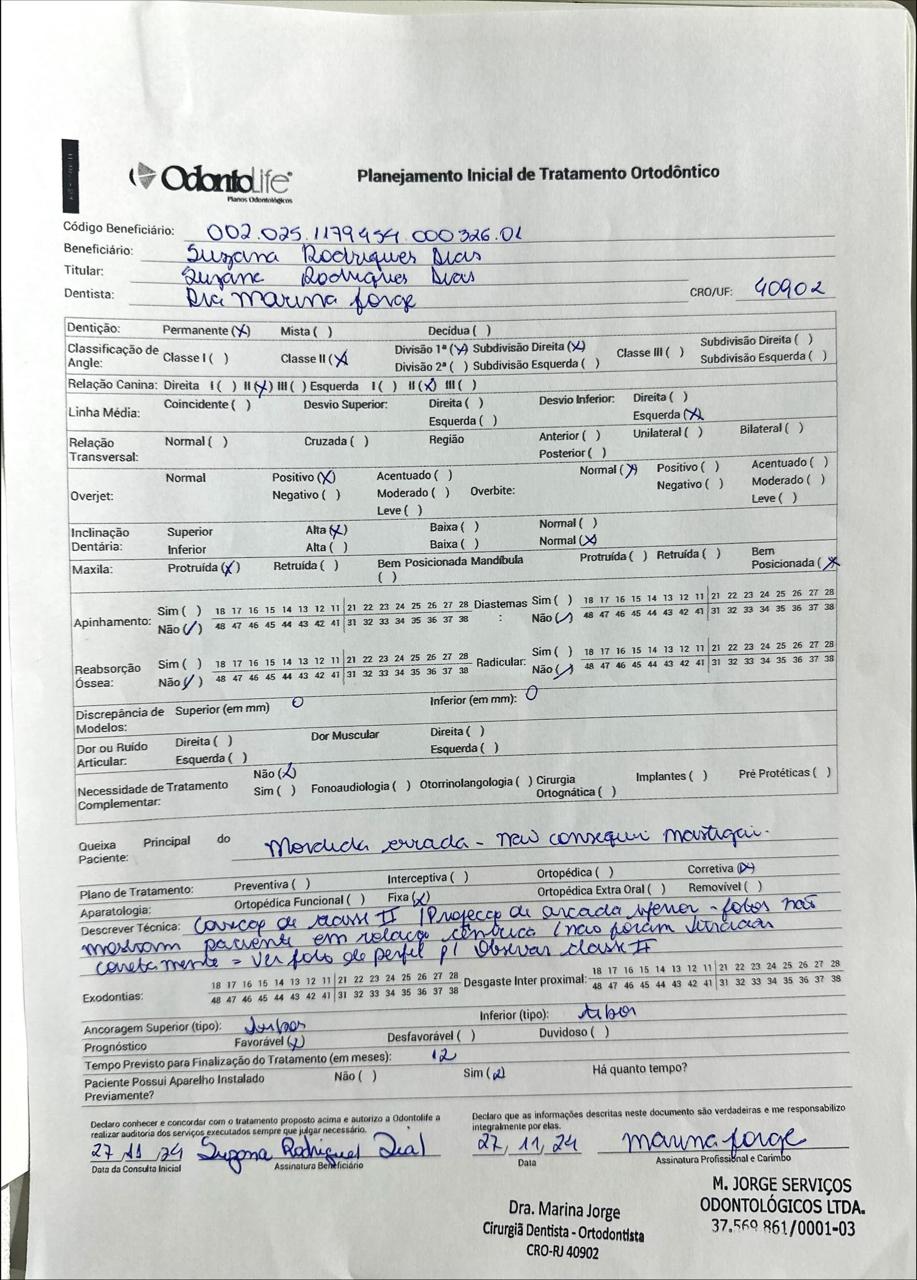 OdontoLife
Planos Odontológicos
Planejamento Inicial de Tratamento Ortodôntico
Código Beneficiário: 002.025.1179454.000326.01
Beneficiário: Suzana Rodrigues Dias
Titular: Suzana Rodrigues Dias
Dentista: Dra Marina Jorge CRO/UF: 40902
Dentição: Permanente (X) Mista ( ) Decídua ( )
Classificação de Angle: Classe I ( ) Classe II (X) Divisão 1ª (X) Subdivisão Direita (X) Classe III ( ) Subdivisão Direita ( )
Divisão 2ª ( ) Subdivisão Esquerda ( ) Subdivisão Esquerda ( )
Relação Canina: Direita I ( ) II (X) III ( ) Esquerda I ( ) II (X) III ( )
Linha Média: Coincidente ( ) Desvio Superior: Direita ( ) Desvio Inferior: Direita ( )
Esquerda ( ) Esquerda (X)
Relação Transversal: Normal ( ) Cruzada ( ) Região Anterior ( ) Unilateral ( ) Bilateral ( )
Posterior ( )
Overjet: Normal Positivo (X) Acentuado ( ) Overbite: Normal (X) Positivo ( ) Acentuado ( )
Negativo ( ) Moderado ( ) Negativo ( ) Moderado ( )
Leve ( ) Leve ( )
Inclinação Dentária: Superior Alta (X) Baixa ( ) Normal ( )
Inferior Alta ( ) Baixa ( ) Normal (X)
Maxila: Protruída (X) Retruída ( ) Bem Posicionada ( ) Mandíbula Protruída ( ) Retruída ( ) Bem Posicionada (X)
Apinhamento: Sim ( ) 18 17 16 15 14 13 12 11 21 22 23 24 25 26 27 28 Diastemas: Sim ( ) 18 17 16 15 14 13 12 11 21 22 23 24 25 26 27 28
Não (/) 48 47 46 45 44 43 42 41 31 32 33 34 35 36 37 38 Não (/) 48 47 46 45 44 43 42 41 31 32 33 34 35 36 37 38
Reabsorção Óssea: Sim ( ) 18 17 16 15 14 13 12 11 21 22 23 24 25 26 27 28 Radicular: Sim ( ) 18 17 16 15 14 13 12 11 21 22 23 24 25 26 27 28
Não (/) 48 47 46 45 44 43 42 41 31 32 33 34 35 36 37 38 Não (/) 48 47 46 45 44 43 42 41 31 32 33 34 35 36 37 38
Discrepância de Modelos: Superior (em mm) 0 Inferior (em mm): 0
Dor ou Ruído Articular: Direita ( ) Dor Muscular Direita ( )
Esquerda ( ) Esquerda ( )
Necessidade de Tratamento Complementar: Não (X)
Sim ( ) Fonoaudiologia ( ) Otorrinolangologia ( ) Cirurgia Ortognática ( ) Implantes ( ) Pré Protéticas ( )
Queixa Principal do Paciente: Mordida errada - não consegui mastigar.
Plano de Tratamento: Preventiva ( ) Interceptiva ( ) Ortopédica ( ) Corretiva (X)
Aparatologia: Ortopédica Funcional ( ) Fixa (X) Ortopédica Extra Oral ( ) Removível ( )
Descrever Técnica: Correção de classe II / Projeção de arcada inferior - fotos não
mostram paciente em relação cêntrica / não foram tiradas
corretamente = ver foto de perfil p/ observar classe II
Exodontias: 18 17 16 15 14 13 12 11 21 22 23 24 25 26 27 28 Desgaste Inter proximal: 18 17 16 15 14 13 12 11 21 22 23 24 25 26 27 28
48 47 46 45 44 43 42 41 31 32 33 34 35 36 37 38 48 47 46 45 44 43 42 41 31 32 33 34 35 36 37 38
Ancoragem Superior (tipo): Inferior (tipo):
Prognóstico Favorável (X) Desfavorável ( ) Duvidoso ( )
Tempo Previsto para Finalização do Tratamento (em meses): 12
Paciente Possui Aparelho Instalado Previamente? Não ( ) Sim (X) Há quanto tempo?
Declaro conhecer e concordar com o tratamento proposto acima e autorizo a Odontolife a realizar auditoria dos serviços executados sempre que julgar necessário.
Declaro que as informações descritas neste documento são verdadeiras e me responsabilizo integralmente por elas.
27 11 24 Suzana Rodrigues Dias 27, 11, 24 Marina Jorge
Data da Consulta Inicial Assinatura Beneficiário Data Assinatura Profissional e Carimbo
Dra. Marina Jorge
Cirurgiã Dentista - Ortodontista
CRO-RJ 40902
M. JORGE SERVIÇOS
ODONTOLÓGICOS LTDA.
37.569.861/0001-03